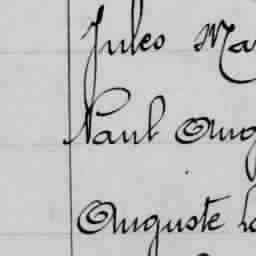 Jules Ma
Paul Aug
Auguste Lo